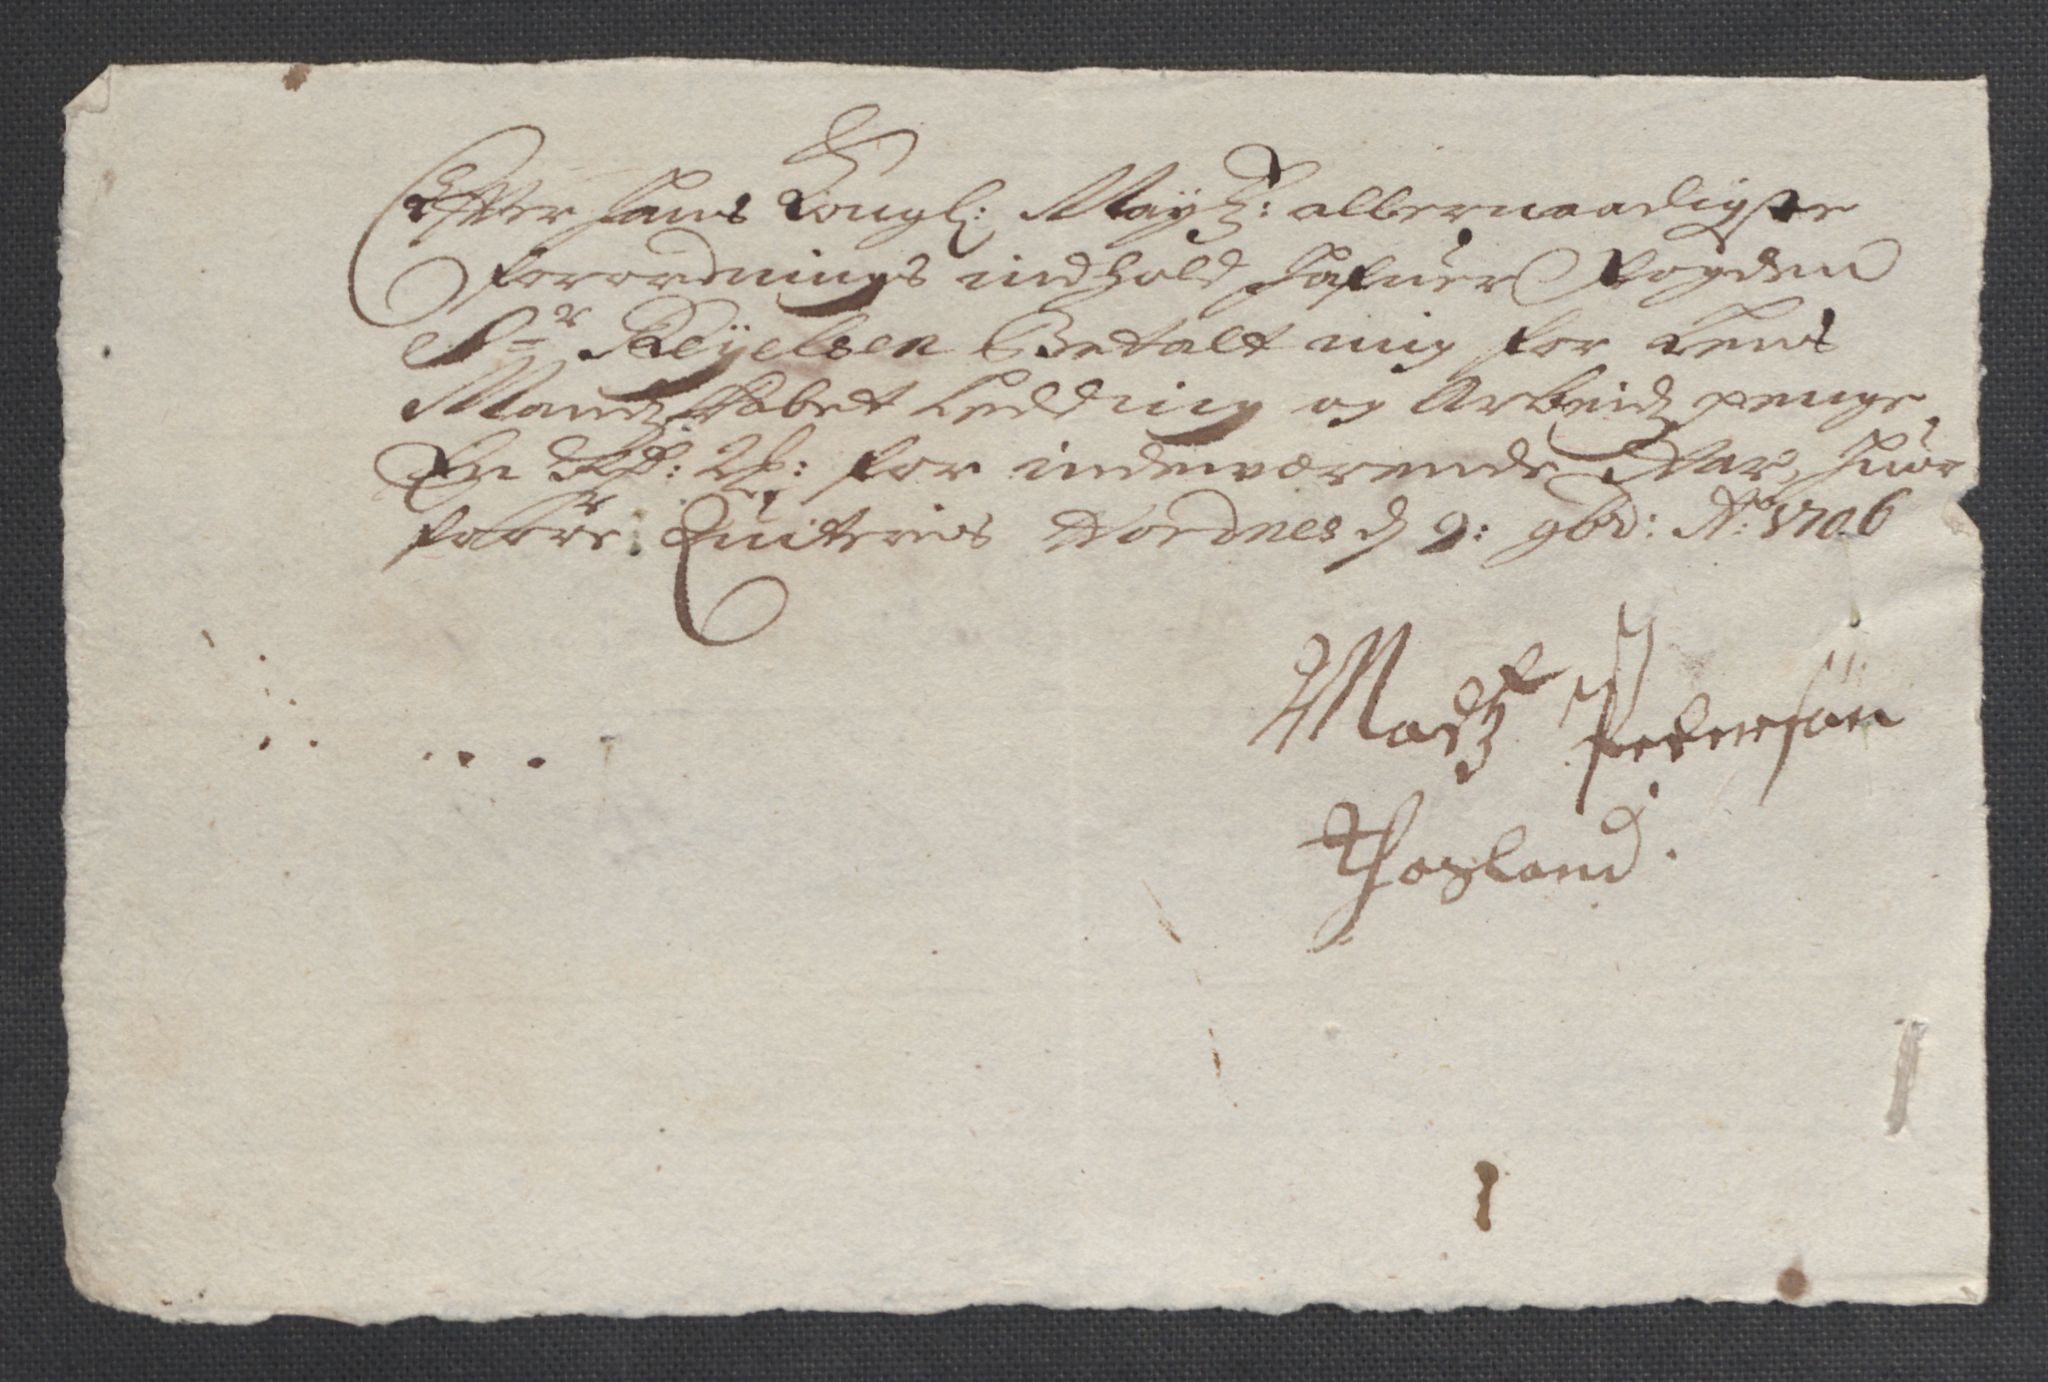 Effter Hans Kongl: Mayts: allernaadigste
forordnings indhold hafuer fogden
Sr Reyelsen Betalt mig for Lens
Mandskabet Ledding og Arbeids penge
En Rdr: 2 s: for indeværende Aar, huor
faare Quiteris Nordnes d 9: 9bd: Ao: 1706
Madtz Pedersøn
Hogland.